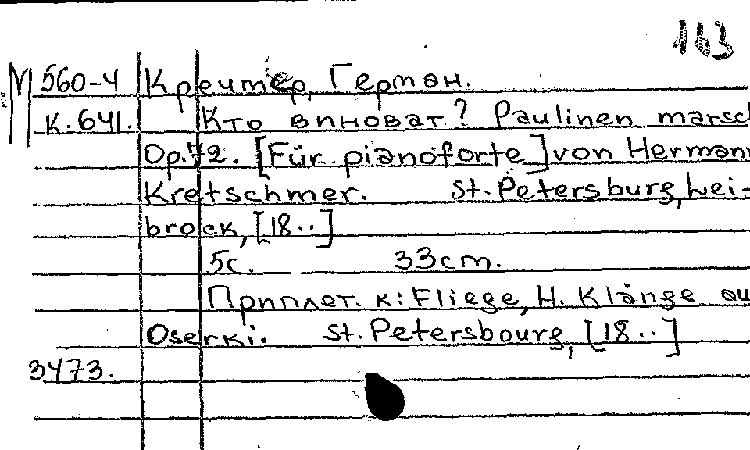 163
М 560-4 Кречмер, Герман.
К.641. Кто виноват? Paulinen marsch
Op.72. [Für pianoforte] von Hermann
Kretschmer. St. Petersburg, Lei-
brock, [18..]
5с. 33cm.
Приплет. к: Fliege, H. Klänge au
Oserki. St. Petersbourg, [18..]
3473.